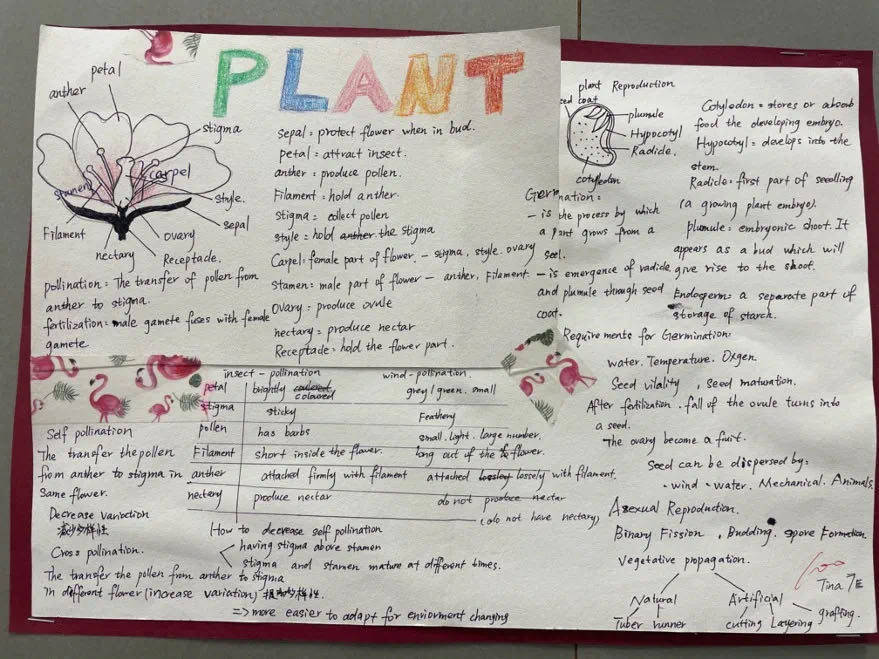 PLANT
petal
anther
stigma
carpel
stamen
style.
sepal
Filament
ovary
nectary
Receptacle.
sepal = protect flower when in bud.
petal = attract insect.
anther = produce pollen.
Filament = hold anther.
stigma = collect pollen
style = hold anther the stigma
Carpel: female part of flower. - stigma, style. ovary
stamen: male part of flower - anther, Filament.
Ovary = produce ovule
nectary = produce nectar
Receptacle = hold the flower part.
pollination = The transfer of pollen from
anther to stigma.
fertilization = male gamete fuses with female
gamete
insect - pollination wind - pollination.
petal brightly coloured grey / green. small
coloured
stigma sticky Feathery
pollen has barbs small. light. large number.
Filament short inside the flower. long out of the flower.
anther attached firmly with filament attached lossley lossely with filament.
nectery produce nectar do not produce nectar
(do not have nectary)
Self pollination
The transfer the pollen
from anther to stigma in
same flower.
Decrease variation
减少多样性
Cross pollination.
The transfer the pollen from anther to stigma
in different flower (increase variation) 多样性.
=> more easier to adapt for enviorment changing
How to decrease self pollination
having stigma above stamen
stigma and stamen mature at different times.
plant Reproduction
seed coat
plumule
Hypocotyl
Radicle.
cotyledon
Germination:
- is the process by which
a plant grows from a
seed.
- is emergence of radicle
and plumule through seed
coat.
Cotyledon = stores or absorb
food the developing embryo.
Hypocotyl = develops into the
stem.
Radicle: first part of seedling
(a growing plant embryo).
plumule: embryonic shoot. It
appears as a bud which will
give rise to the shoot.
Endosperm: a separate part of
storage of starch.
Requirements for Germination:
water. Temperature. Oxgen.
Seed vitality , seed maturation.
After fertilization. fall of the ovule turns into
a seed.
The ovary become a fruit.
Seed can be dispersed by:
· wind · water. Mechanical. Animals.
Asexual Reproduction.
Binary Fission , Budding. spore Formation
Vegetative propagation.
Natural Artificial
Tuber runner cutting Layering grafting.
100
Tina 7E